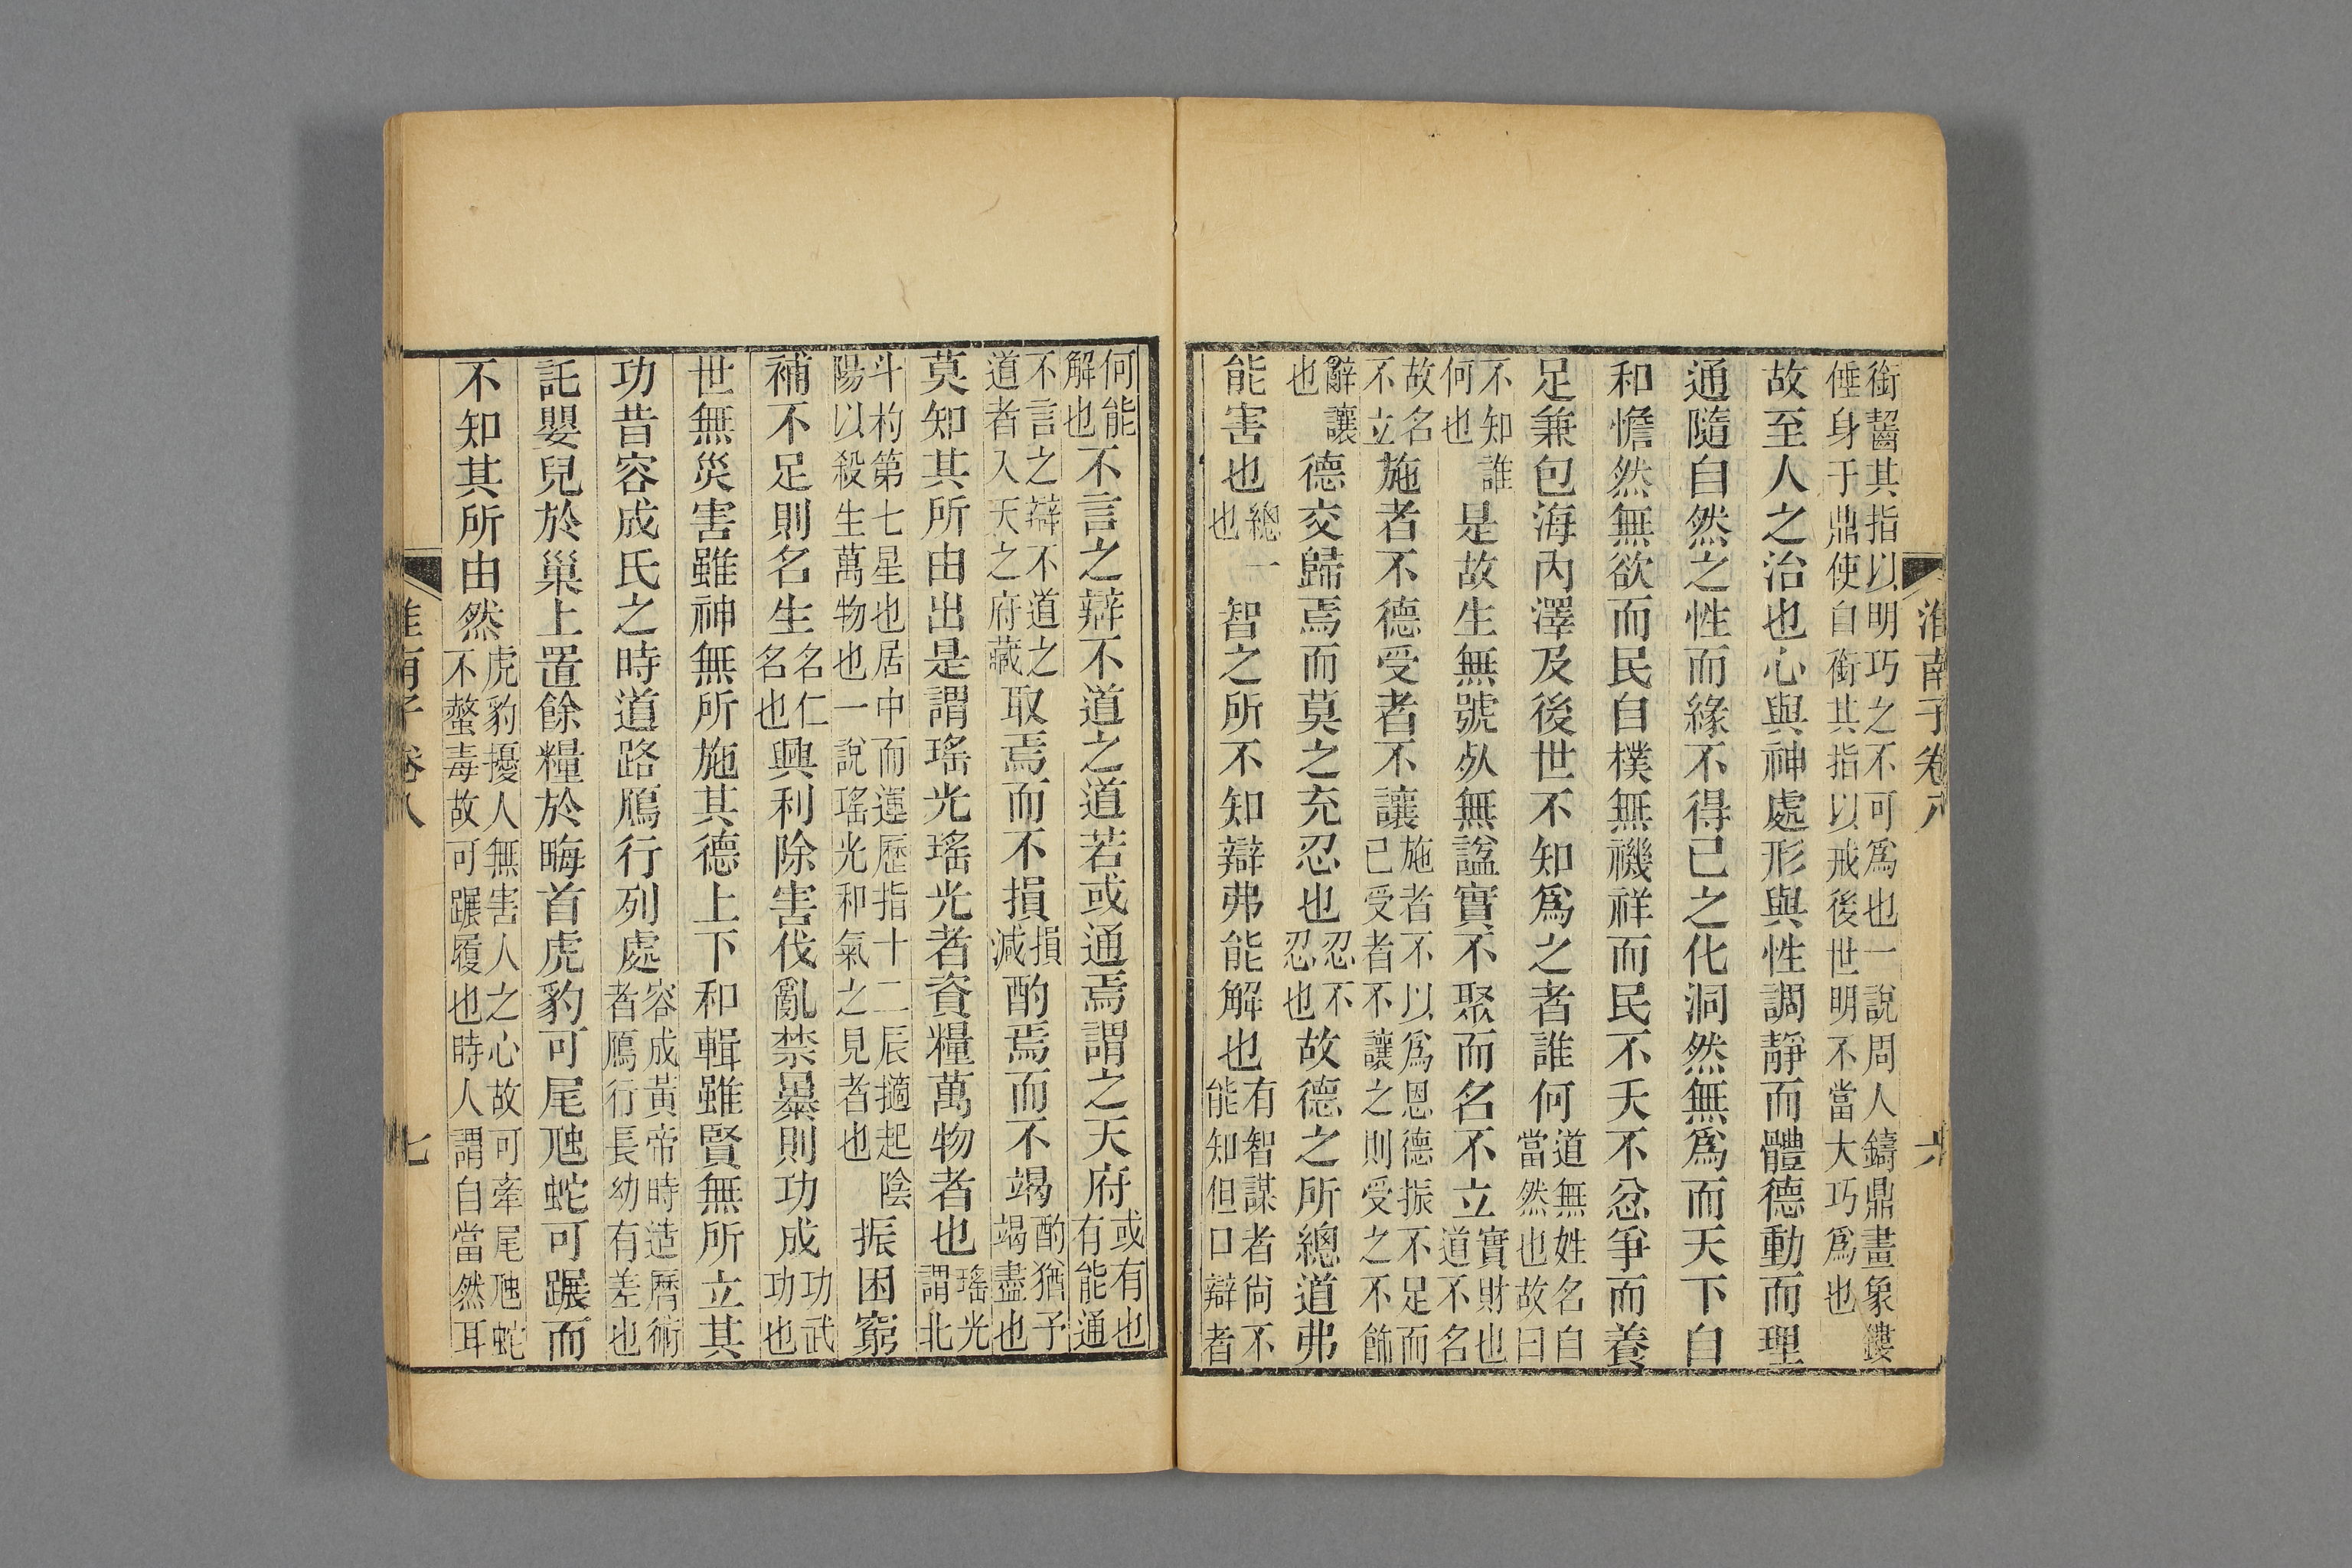 淮南子卷八 六
銜齧其指以明巧之不可爲也一說周人鑄鼎畫象鏤
倕身于鼎使自銜其指以戒後世明不當大巧爲也
故至人之治也心與神處形與性調靜而體德動而理
通隨自然之性而緣不得已之化洞然無爲而天下自
和憺然無欲而民自樸無禨祥而民不夭不忿爭而養
足兼包海內澤及後世不知爲之者誰何
道無姓名自
當然也故曰
不知誰
何也
是故生無號死無諡實不聚而名不立
實財也
道不名
故名
不立
施者不德受者不讓
施者不以爲恩德振不足而
已受者不讓之則受之不飾
辭讓
也
德交歸焉而莫之充忍也
忍不
忍也
故德之所總道弗
能害也
總一
也
智之所不知辯弗能解也
有智謀者尙不
能知但口辯者
何能
解也
不言之辯不道之道若或通焉謂之天府
或有也
有能通
不言之辯不道之
道者入天之府藏
取焉而不損
損
減
酌焉而不竭
酌猶予
竭盡也
莫知其所由出是謂瑤光瑤光者資糧萬物者也
瑤光
謂北
斗杓第七星也居中而運歷指十二辰擿起陰
陽以殺生萬物也一說瑤光和氣之見者也
振困窮
補不足則名生
名仁
名也
興利除害伐亂禁暴則功成
功武
功也
世無災害雖神無所施其德上下和輯雖賢無所立其
功昔容成氏之時道路鴈行列處
容成黃帝時造曆術
者鴈行長幼有差也
託嬰兒於巢上置餘糧於畮首虎豹可尾虺蛇可蹍而
不知其所由然
虎豹擾人無害人之心故可牽尾虺蛇
不螫毒故可蹍履也時人謂自當然耳
淮南子卷八 七